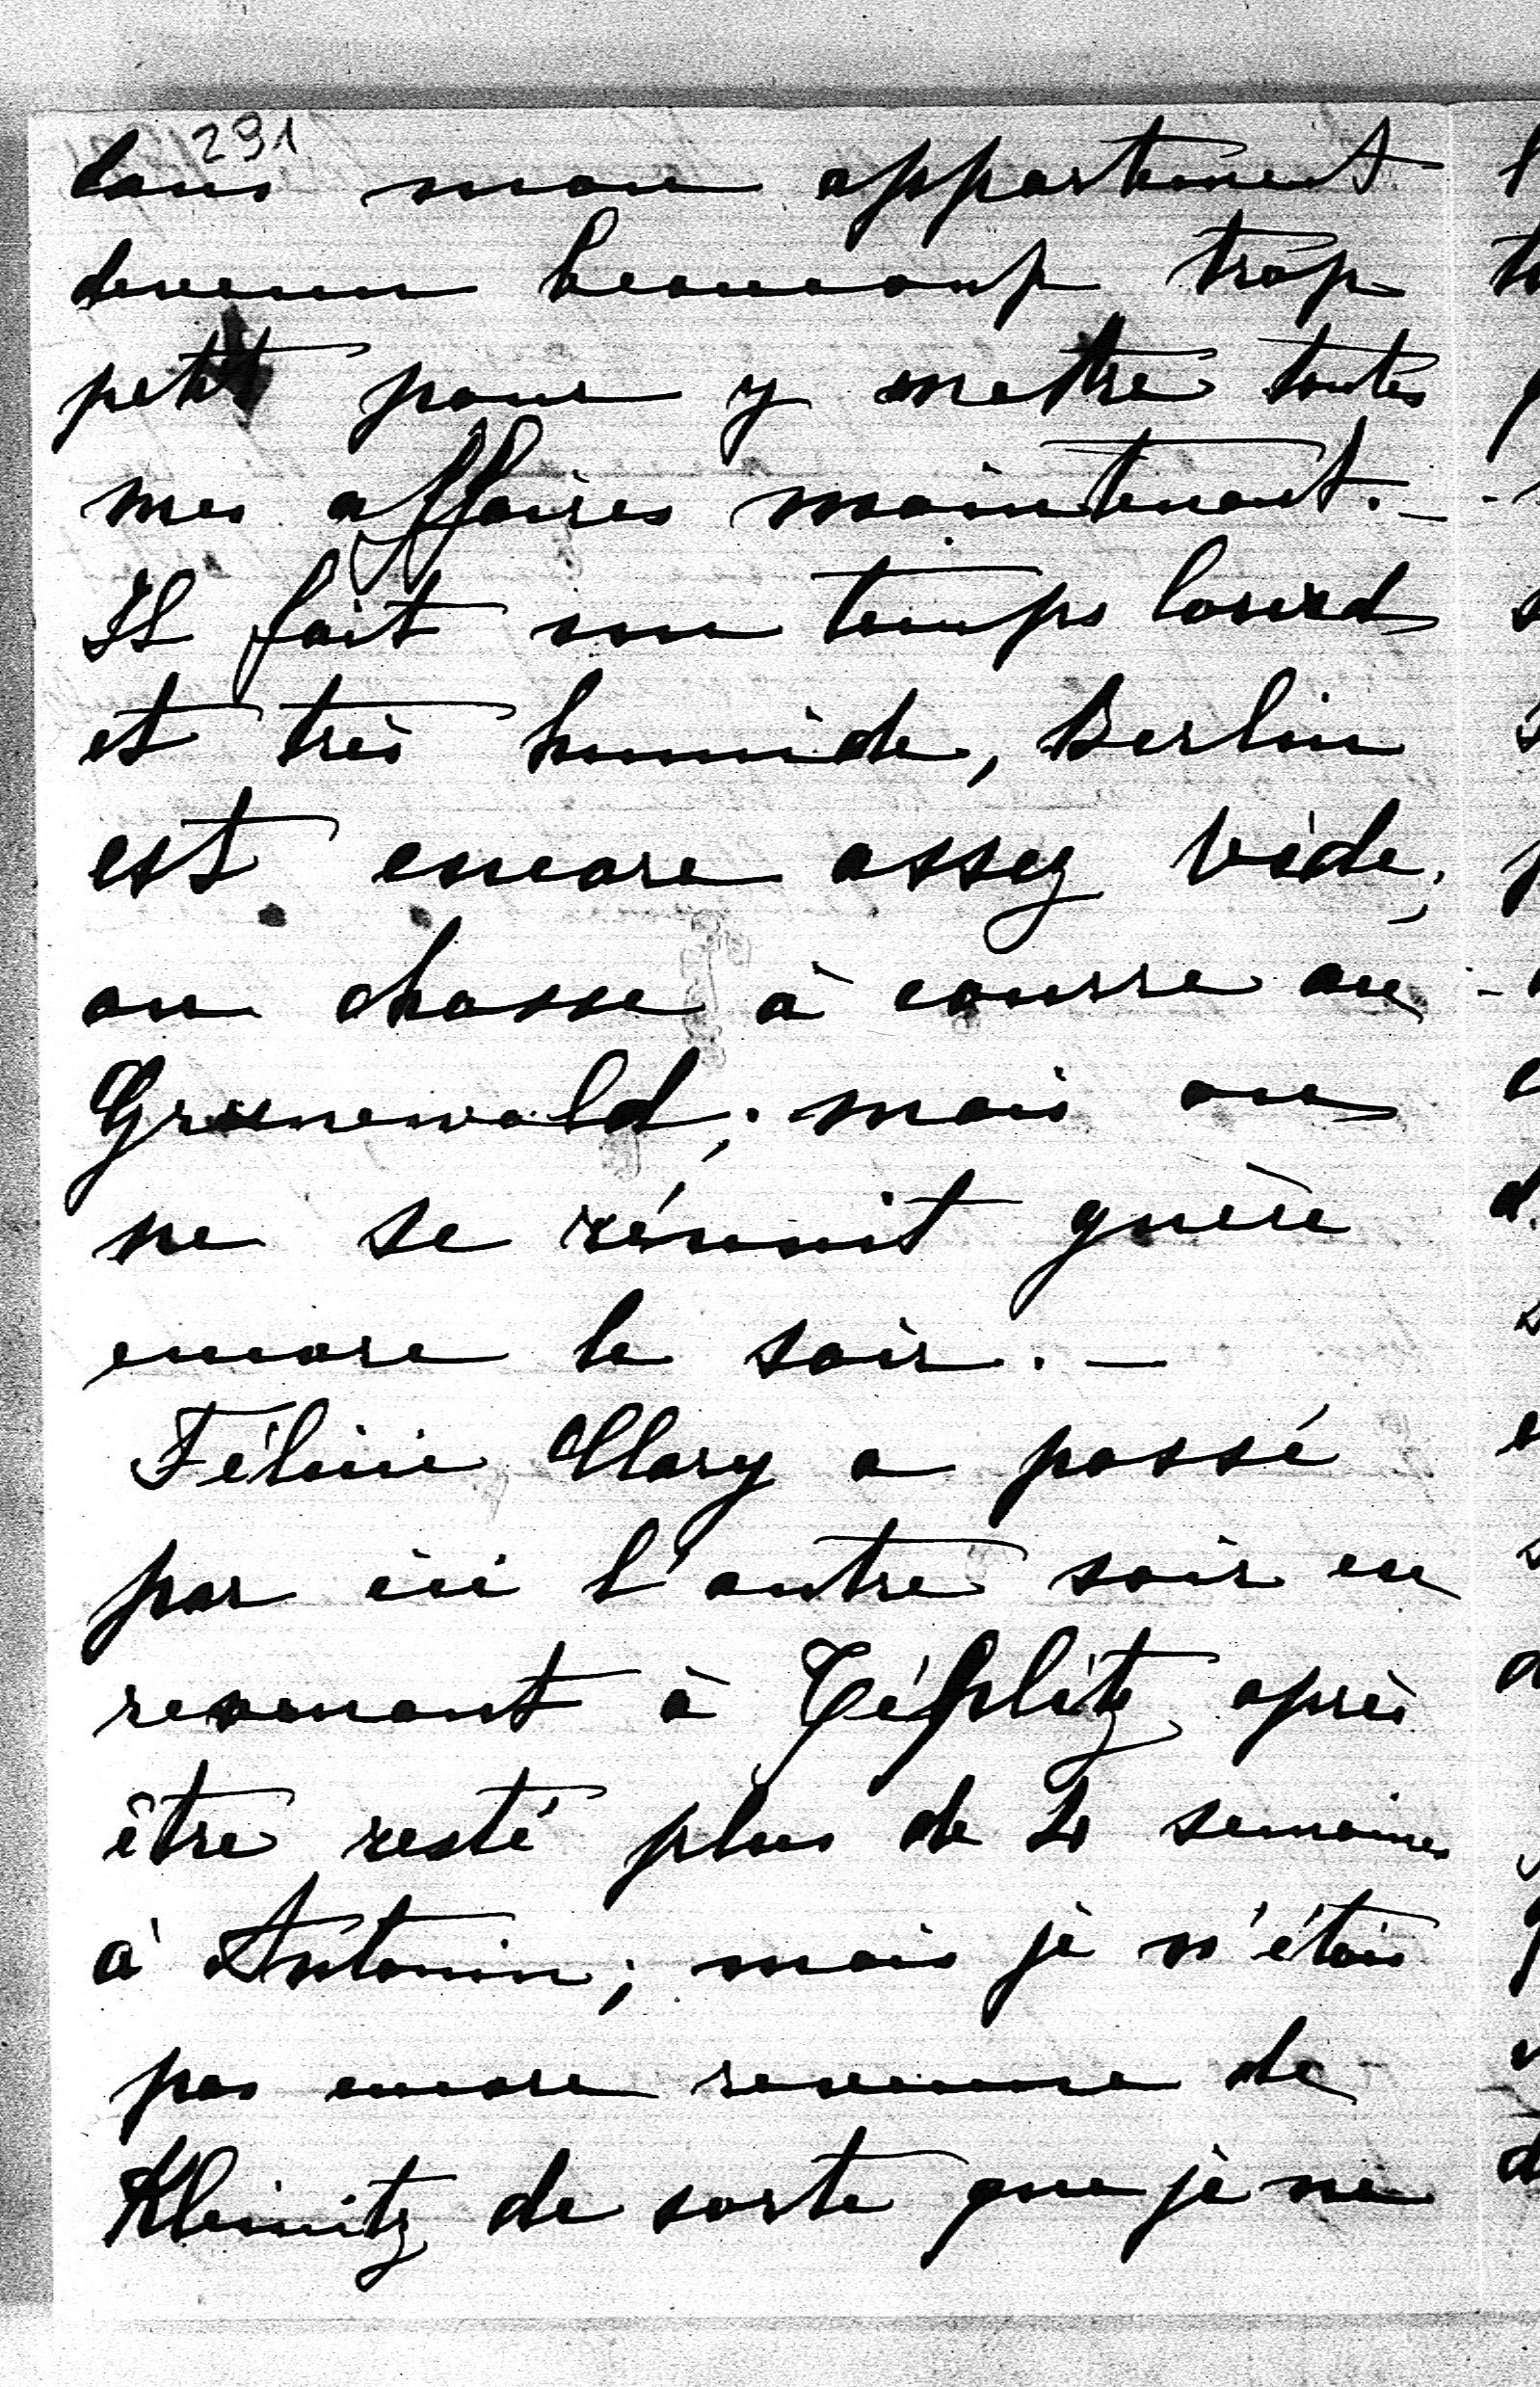 291
dans mon appartement
devenu beaucoup trop
petit pour y mettre toutes
mes affaires maintenant. —
Il fait un temps lourd
et très humide, Berlin
est encore assez vide,
on chasse à courre au
Grunewald; mais on
ne se réunit guère
encore le soir. —
Félicie Clary a passé
par ici l'autre soir en
revenant à Téplitz après
être resté plus de 2 semaines
à Antonin; mais je n'étais
pas encore revenue de
Kleinitz de sorte que je ne